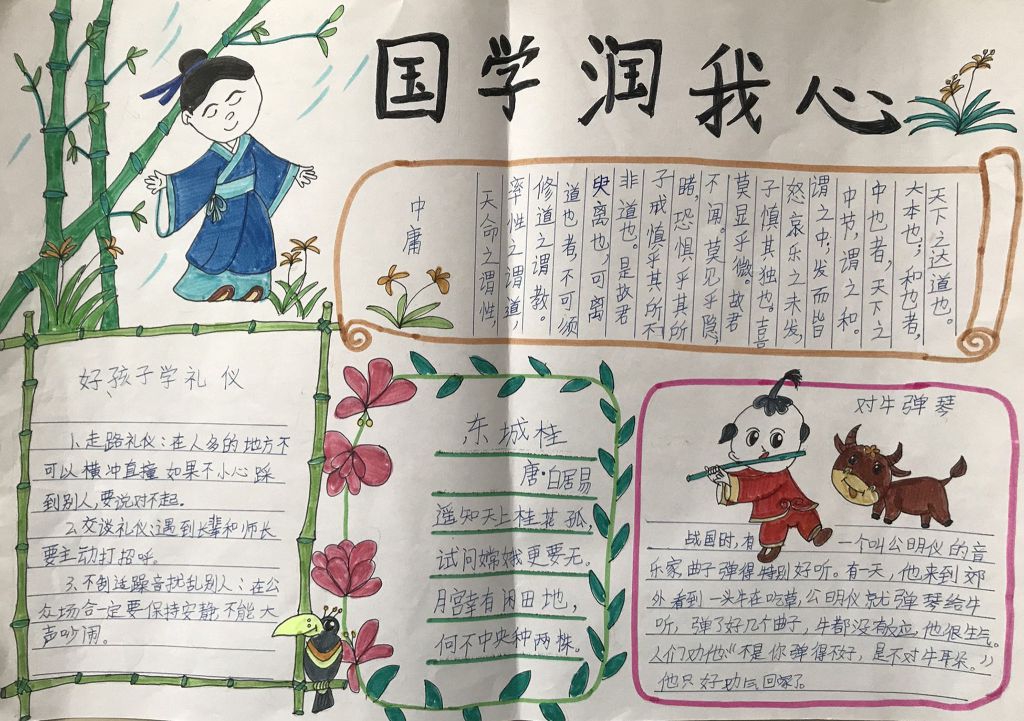 国学润我心
中庸
天命之谓性，
率性之谓道，
修道之谓教。
道也者，不可须
臾离也，可离
非道也。是故君
子戒慎乎其所不
睹，恐惧乎其所
不闻。莫见乎隐，
莫显乎微。故君
子慎其独也。喜
怒哀乐之未发，
谓之中；发而皆
中节，谓之和。
中也者，天下之
大本也；和也者，
天下之达道也。
好孩子学礼仪
1.走路礼仪：在人多的地方不
可以横冲直撞 如果不小心踩
到别人，要说对不起。
2.交谈礼仪：遇到长辈和师长
要主动打招呼。
3.不制造躁音扰乱别人：在公
众场合一定要保持安静，不能大
声吵闹。
东城桂
唐·白居易
遥知天上桂花孤，
试问嫦娥更要无。
月宫幸有闲田地，
何不中央种两株。
对牛弹琴
战国时，有一个叫公明仪的音
乐家曲子弹得特别好听。有一天，他来到郊
外看到一头牛在吃草，公明仪就弹琴给牛
听，弹了好几个曲子，牛都没有反应，他很生气。
人们劝他“不是你弹得不好，是不对牛耳朵。”
他只好叹气回家了。